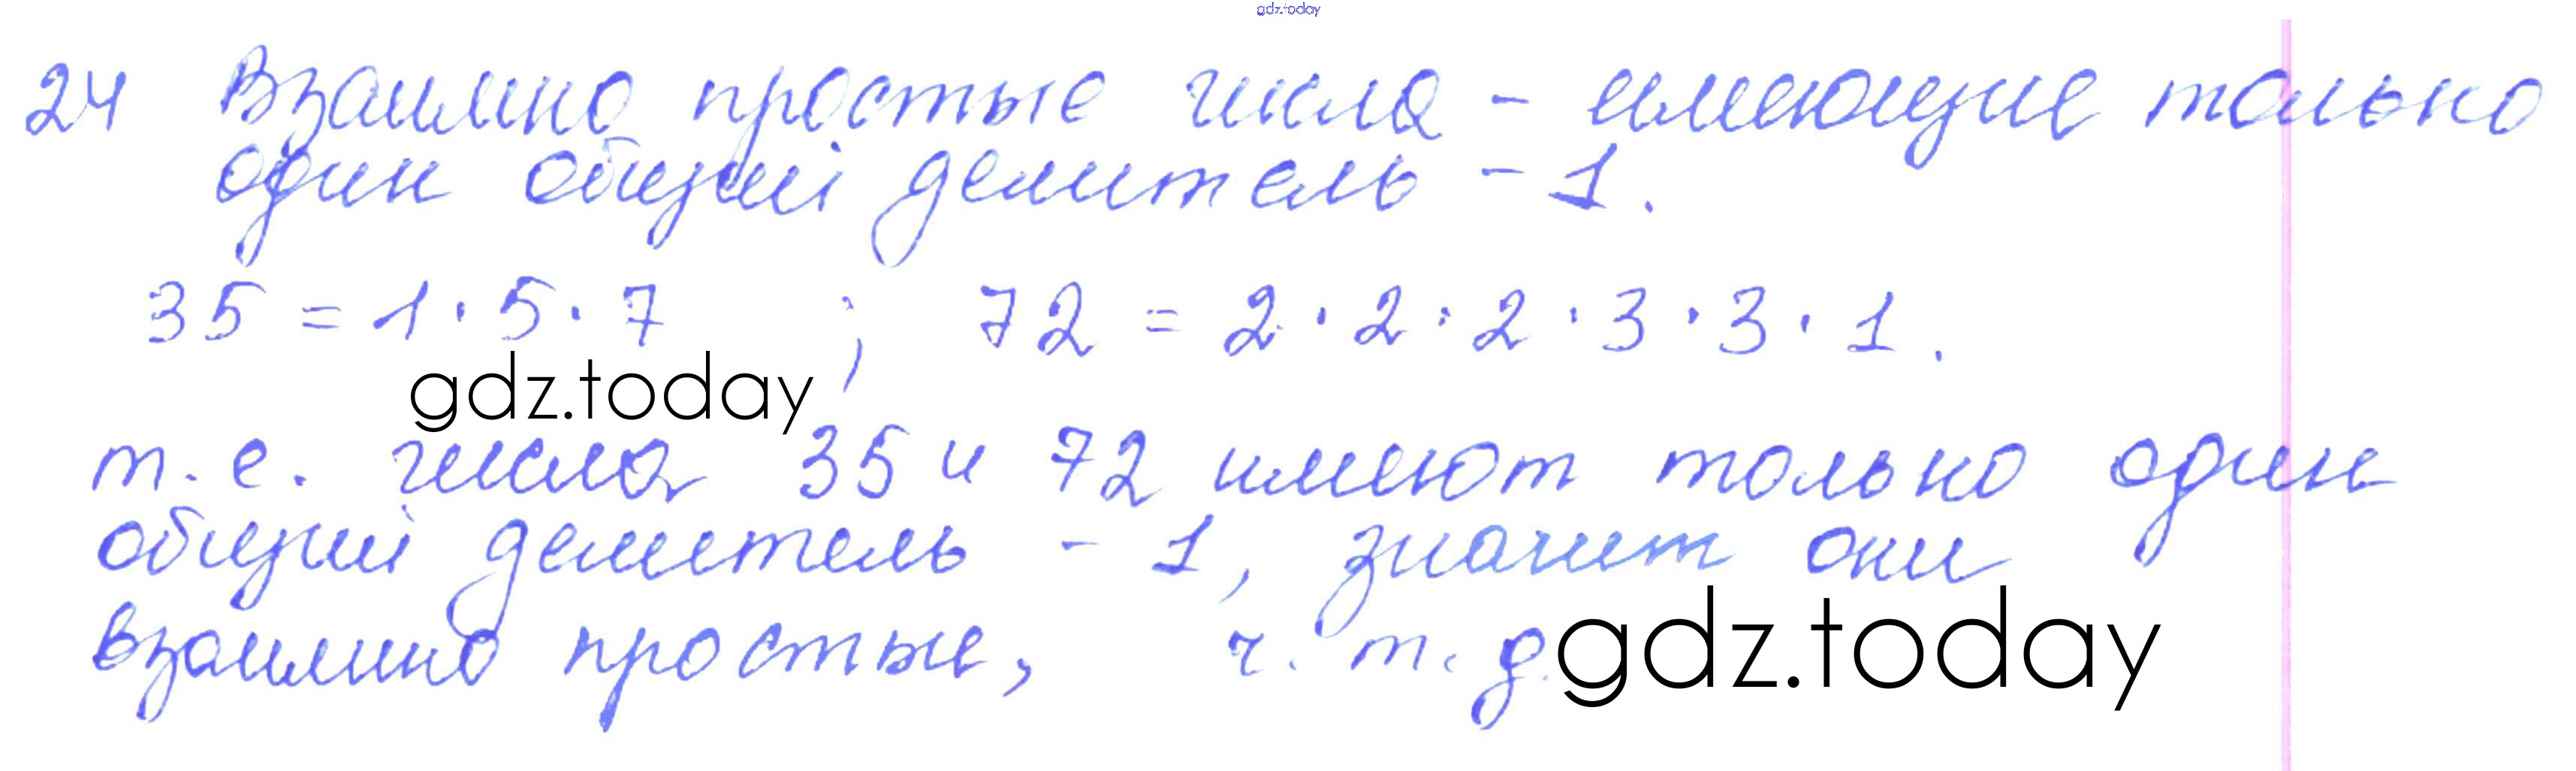 gdz.today
24 Взаимно простые числа - имеющие только
один общий делитель - 1.
35 = 1 · 5 · 7 ; 72 = 2 · 2 · 2 · 3 · 3 · 1.
gdz.today
т.е. числа 35 и 72 имеют только один
общий делитель - 1, значит они
взаимно простые, ч.т.д.
gdz.today